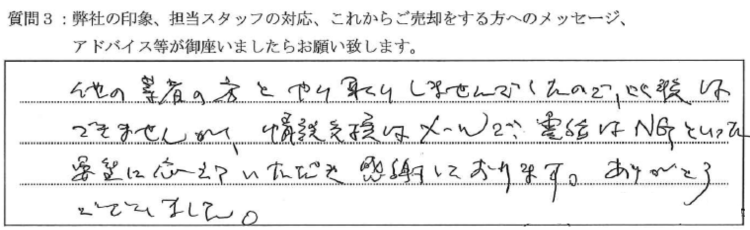 質問3：弊社の印象、担当スタッフの対応、これからご売却をする方へのメッセージ、
アドバイス等が御座いましたらお願い致します。
他の業者の方とやり取りしませんでしたので、比較は
できませんが、情報交換はメールで、電話はNGといった
要望に応えていただき感謝しております。ありがとう
ございました。